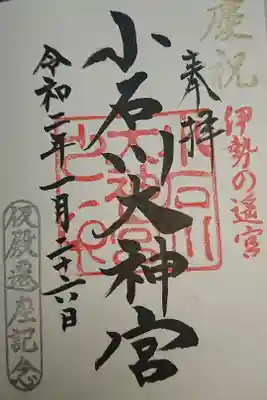 慶祝
伊勢の遥宮
奉拝
小石川大神宮
令和二年一月二十六日
仮殿遷座記念